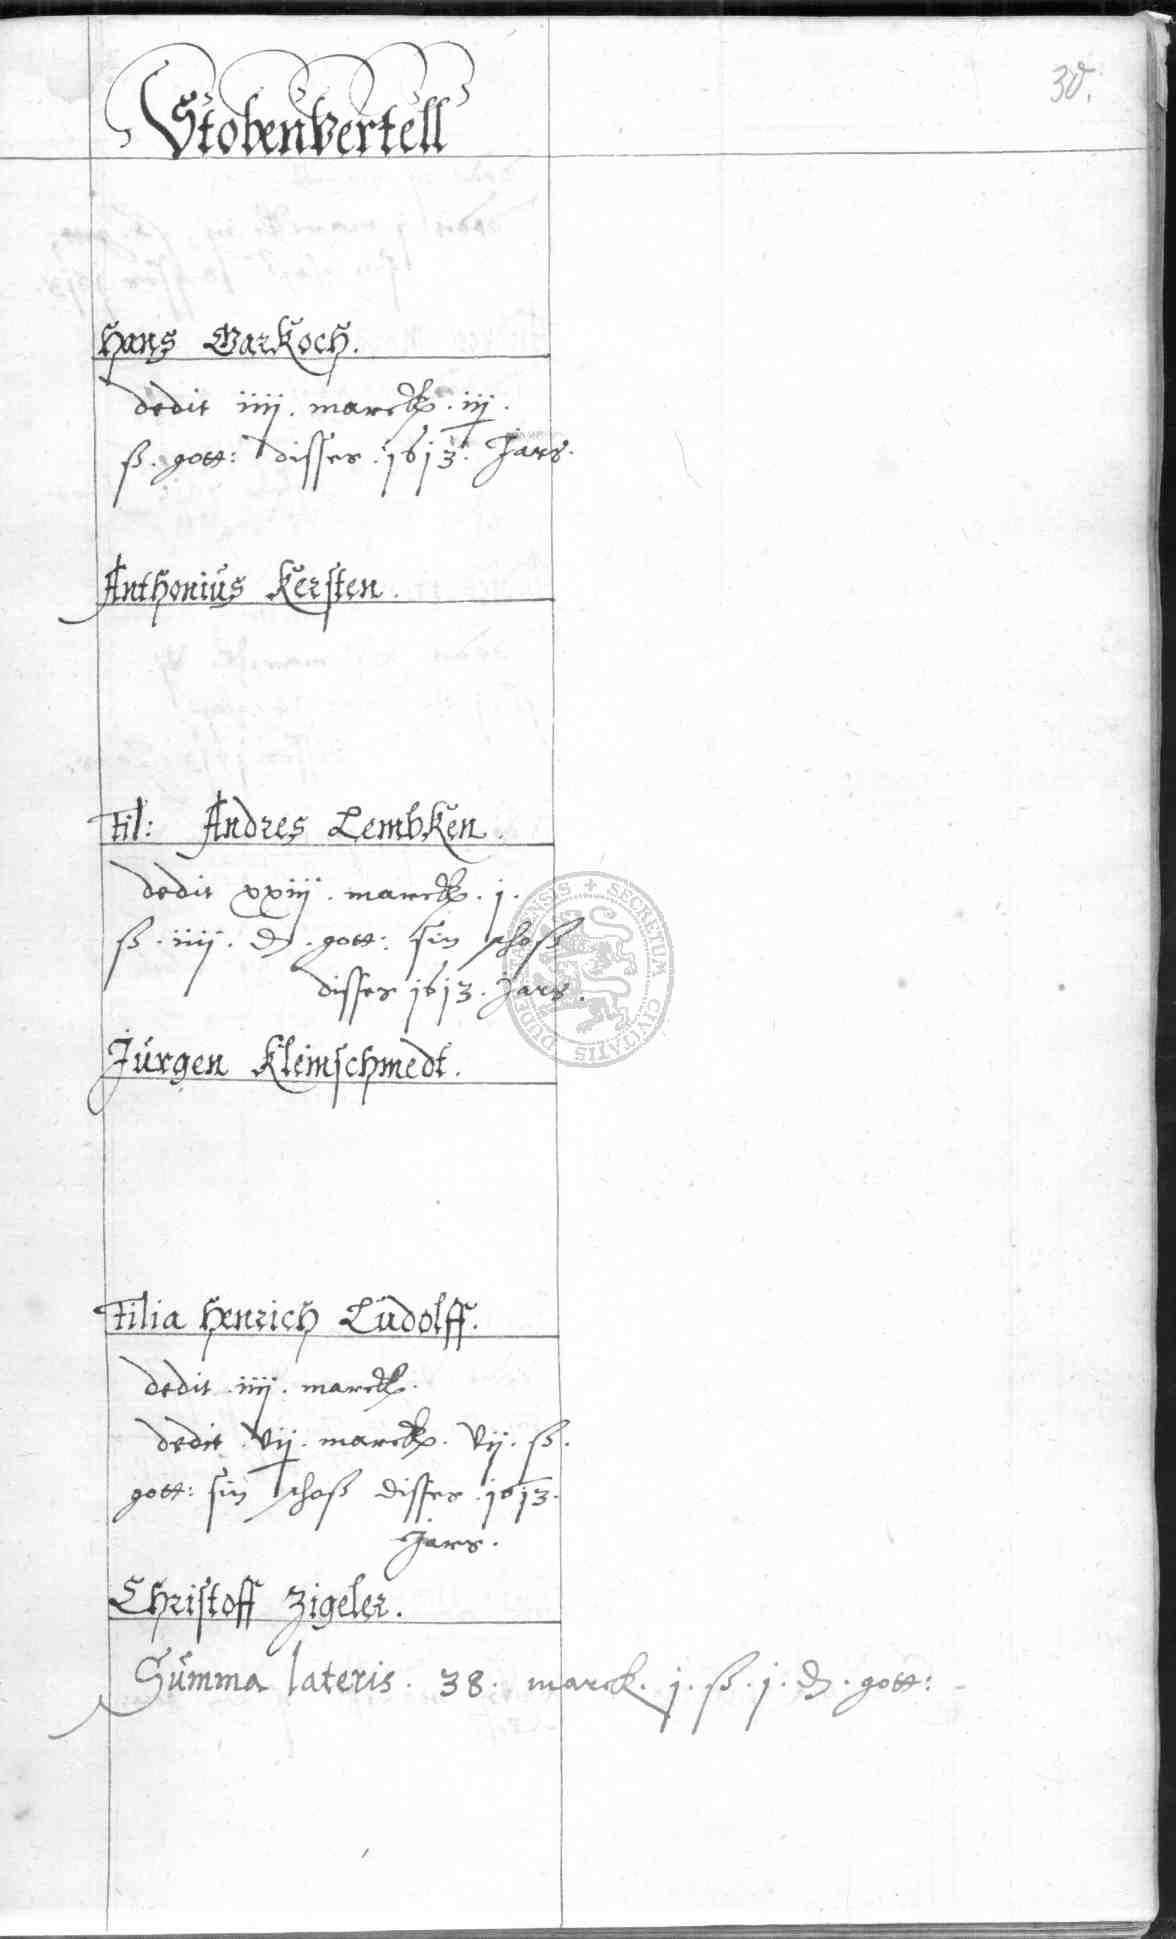 30.
Stobenvertell
Hans Garkoch.
dedit iiij. marck. iij.
ß. gott: disses .1613. Jars.
Anthonius Kersten.
Fil: Andres Lembken.
dedit xxiij. marck. j.
ß. iiij. d. gott: sin schoß
disses 1613. Jars.
Jürgen Kleinschmedt.
Filia Henrich Ludolff.
dedit iiij. marck.
dedit vij. marck. vij. ß.
gott: sin schoß disses .1613.
Jars.
Christoff Zigeler.
Summa lateris. 38. marck. j. ß. j. d. gott:
SECRETUM CIVITATIS DUDERSTATENSIS